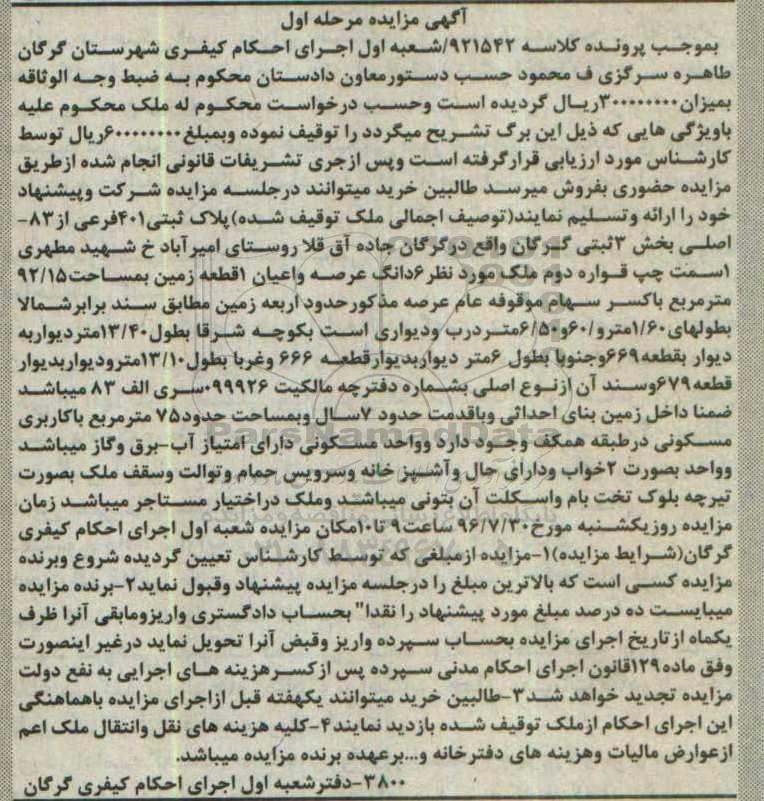 آگهی مزایده مرحله اول
بموجب پرونده کلاسه ۹۲۱۵۴۲/شعبه اول اجرای احکام کیفری شهرستان گرگان
طاهره سرگزی ف محمود حسب دستورمعاون دادستان محکوم به ضبط وجه الوثاقه
بمیزان۳۰۰۰۰۰۰۰۰ریال گردیده است وحسب درخواست محکوم له ملک محکوم علیه
باویژگی هایی که ذیل این برگ تشریح میگردد را توقیف نموده وبمبلغ۶۰۰۰۰۰۰۰۰ریال توسط
کارشناس مورد ارزیابی قرارگرفته است وپس ازجری تشریفات قانونی انجام شده ازطریق
مزایده حضوری بفروش میرسد طالبین خرید میتوانند درجلسه مزایده شرکت وپیشنهاد
خود را ارائه وتسلیم نمایند(توصیف اجمالی ملک توقیف شده)پلاک ثبتی۴۰۱فرعی از۸۳-
اصلی بخش ۳ثبتی گرگان واقع درگرگان جاده آق قلا روستای امیرآباد خ شهید مطهری
۱سمت چپ قواره دوم ملک مورد نظر۶دانگ عرصه واعیان ۱قطعه زمین بمساحت۹۲/۱۵
مترمربع باکسر سهام موقوفه عام عرصه مذکورحدود اربعه زمین مطابق سند برابرشمالا
بطولهای۱/۶۰مترو/۶۰و۶/۵۰متردرب ودیواری است بکوچه شرقا بطول۱۳/۴۰متردیواربه
دیوار بقطعه۶۶۹وجنوبا بطول ۶متر دیواربدیوارقطعه ۶۶۶ وغربا بطول۱۳/۱۰مترودیواربدیوار
قطعه۶۷۹وسند آن ازنوع اصلی بشماره دفترچه مالکیت ۰۹۹۹۲۶سری الف ۸۳ میباشد
ضمنا داخل زمین بنای احداثی وباقدمت حدود ۷سال وبمساحت حدود۷۵ مترمربع باکاربری
مسکونی درطبقه همکف وجود دارد وواحد مسکونی دارای امتیاز آب-برق وگاز میباشد
وواحد بصورت ۲خواب ودارای حال وآشپز خانه وسرویس حمام وتوالت وسقف ملک بصورت
تیرچه بلوک تخت بام واسکلت آن بتونی میباشد وملک دراختیار مستاجر میباشد زمان
مزایده روزیکشنبه مورخ۹۶/۷/۳۰ ساعت۹ تا۱۰مکان مزایده شعبه اول اجرای احکام کیفری
گرگان(شرایط مزایده)۱-مزایده ازمبلغی که توسط کارشناس تعیین گردیده شروع وبرنده
مزایده کسی است که بالاترین مبلغ را درجلسه مزایده پیشنهاد وقبول نماید۲-برنده مزایده
میبایست ده درصد مبلغ مورد پیشنهاد را نقدا" بحساب دادگستری واریزومابقی آنرا ظرف
یکماه ازتاریخ اجرای مزایده بحساب سپرده واریز وقبض آنرا تحویل نماید درغیر اینصورت
وفق ماده۱۲۹قانون اجرای احکام مدنی سپرده پس ازکسرهزینه های اجرایی به نفع دولت
مزایده تجدید خواهد شد۳-طالبین خرید میتوانند یکهفته قبل ازاجرای مزایده باهماهنگی
این اجرای احکام ازملک توقیف شده بازدید نمایند۴-کلیه هزینه های نقل وانتقال ملک اعم
ازعوارض مالیات وهزینه های دفترخانه و...برعهده برنده مزایده میباشد.
۳۸۰۰-دفترشعبه اول اجرای احکام کیفری گرگان
ParsNamadData